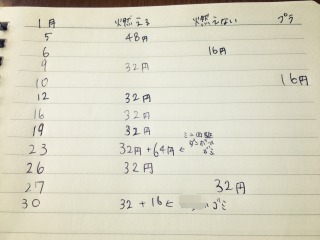 1月 燃える 燃えない プラ
5 48円
6 16円
9 32円
10 16円
12 32円
16 32円
19 32円
23 32円+64円←
26 32円
27 32円
30 32+16← ゴミ